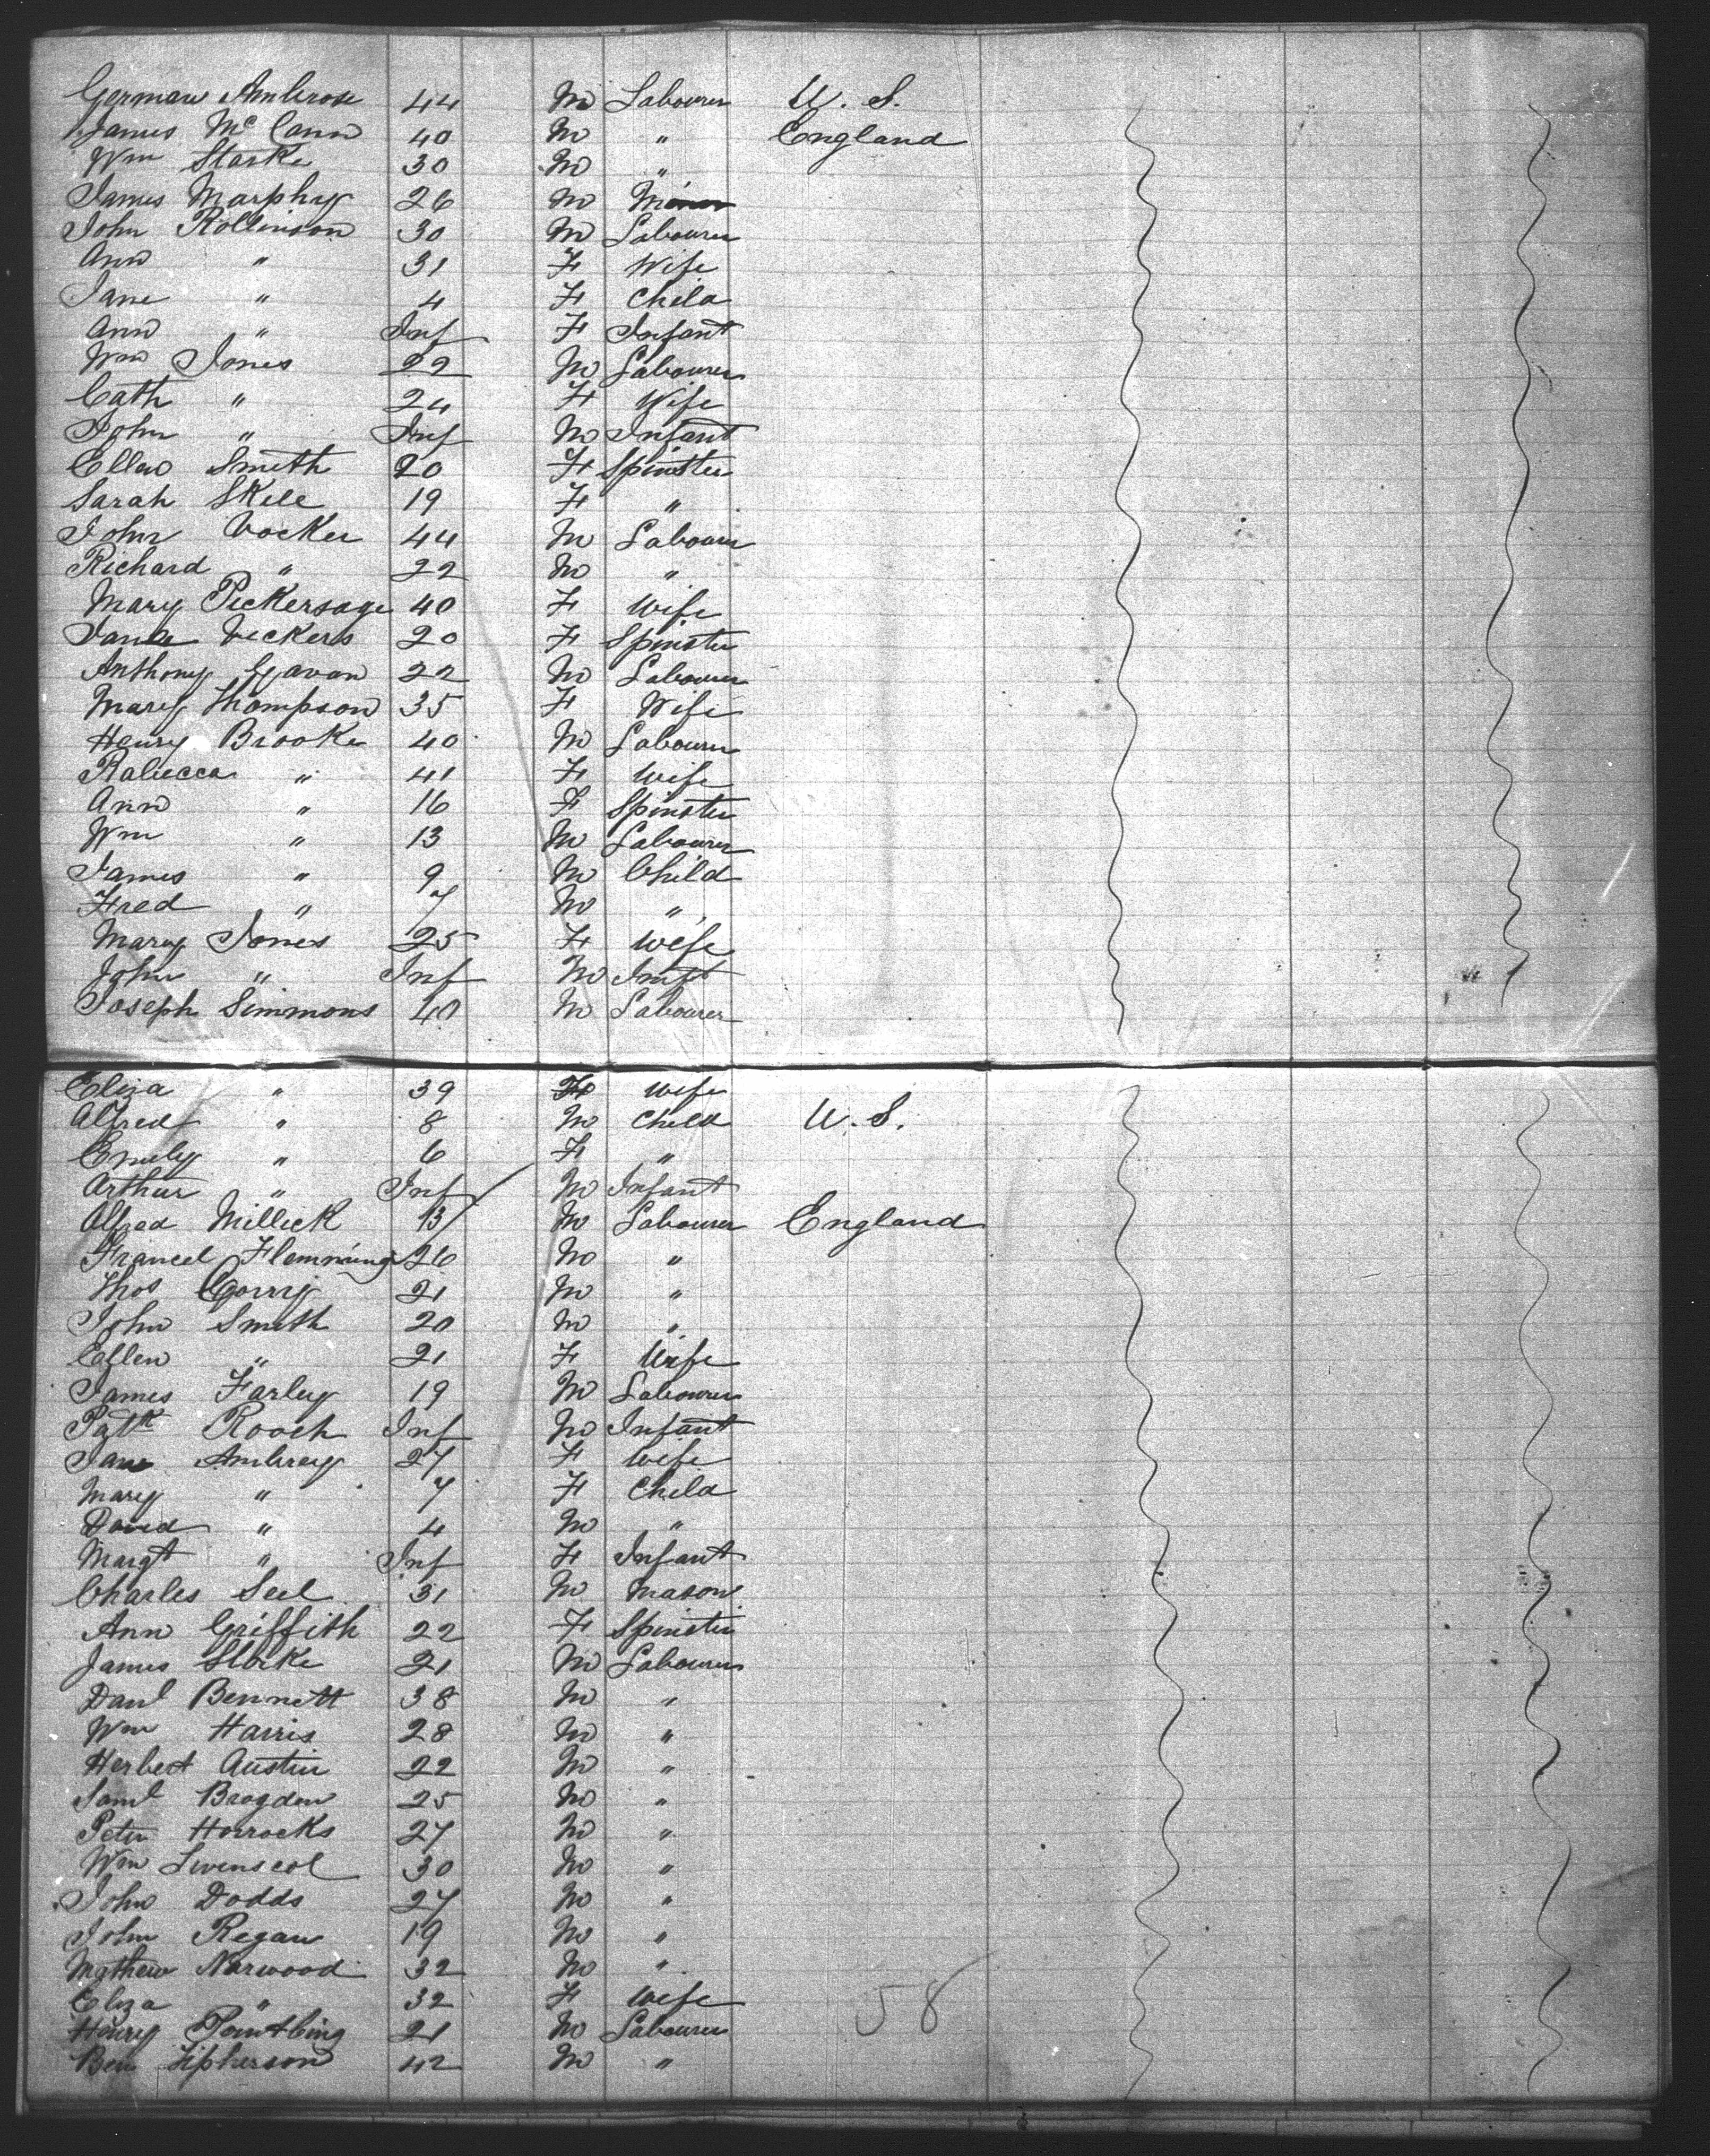 German Ambrose 44 M Labourer U. S.
James McCann 40 M " England
Wm Starke 30 M "
James Marphy 26 M Miner
John Rollinson 30 M Labourer
Ann " 31 F Wife
Jane " 4 F Child
Ann " Inf F Infant
Wm Jones 22 M Labourer
Cath " 24 F Wife
John " Inf M Infant
Ellen Smith 20 F Spinster
Sarah Skele 19 F "
John Vocker 44 M Labourer
Richard " 22 M "
Mary Pickersage 40 F Wife
Jane Vickers 20 F Spinster
Anthony Gavan 22 M Labourer
Mary Thompson 35 F Wife
Henry Brooke 40 M Labourer
Rabecca " 41 F Wife
Ann " 16 F Spinster
Wm " 13 M Labourer
James " 9 M Child
Fred " 7 M "
Mary Jones 25 F Wife
John " Inf M Inft
Joseph Simmons 40 M Labourer
Eliza " 39 F Wife
Alfred " 8 M Child U. S.
Emily " 6 F "
Arthur " Inf M Infant
Alfred Millick 13 M Labourer England
Francel Flemming 26 M "
Thos 21 M "
John Smith 20 M "
Ellen " 21 F Wife
James Farley 19 M Labourer
Patk Rooch Inf M Infant
Jane Ambrey 27 F Wife
Mary " 7 F Child
David " 4 M "
Margt " Inf F Infant
Charles Seel 31 M Mason
Ann Griffith 22 F Spinster
James Slocke 21 M Labourer
Danl Bennett 38 M "
Wm Harris 28 M "
Herbert Austin 22 M "
Saml Brogden 25 M "
Peter Horrocks 27 M "
Wm 30 M "
John Dodds 27 M "
John Regan 19 M "
Mathew Narwood 32 M "
Eliza " 32 F Wife 58
Henry 21 M Labourer
Ben 42 M "